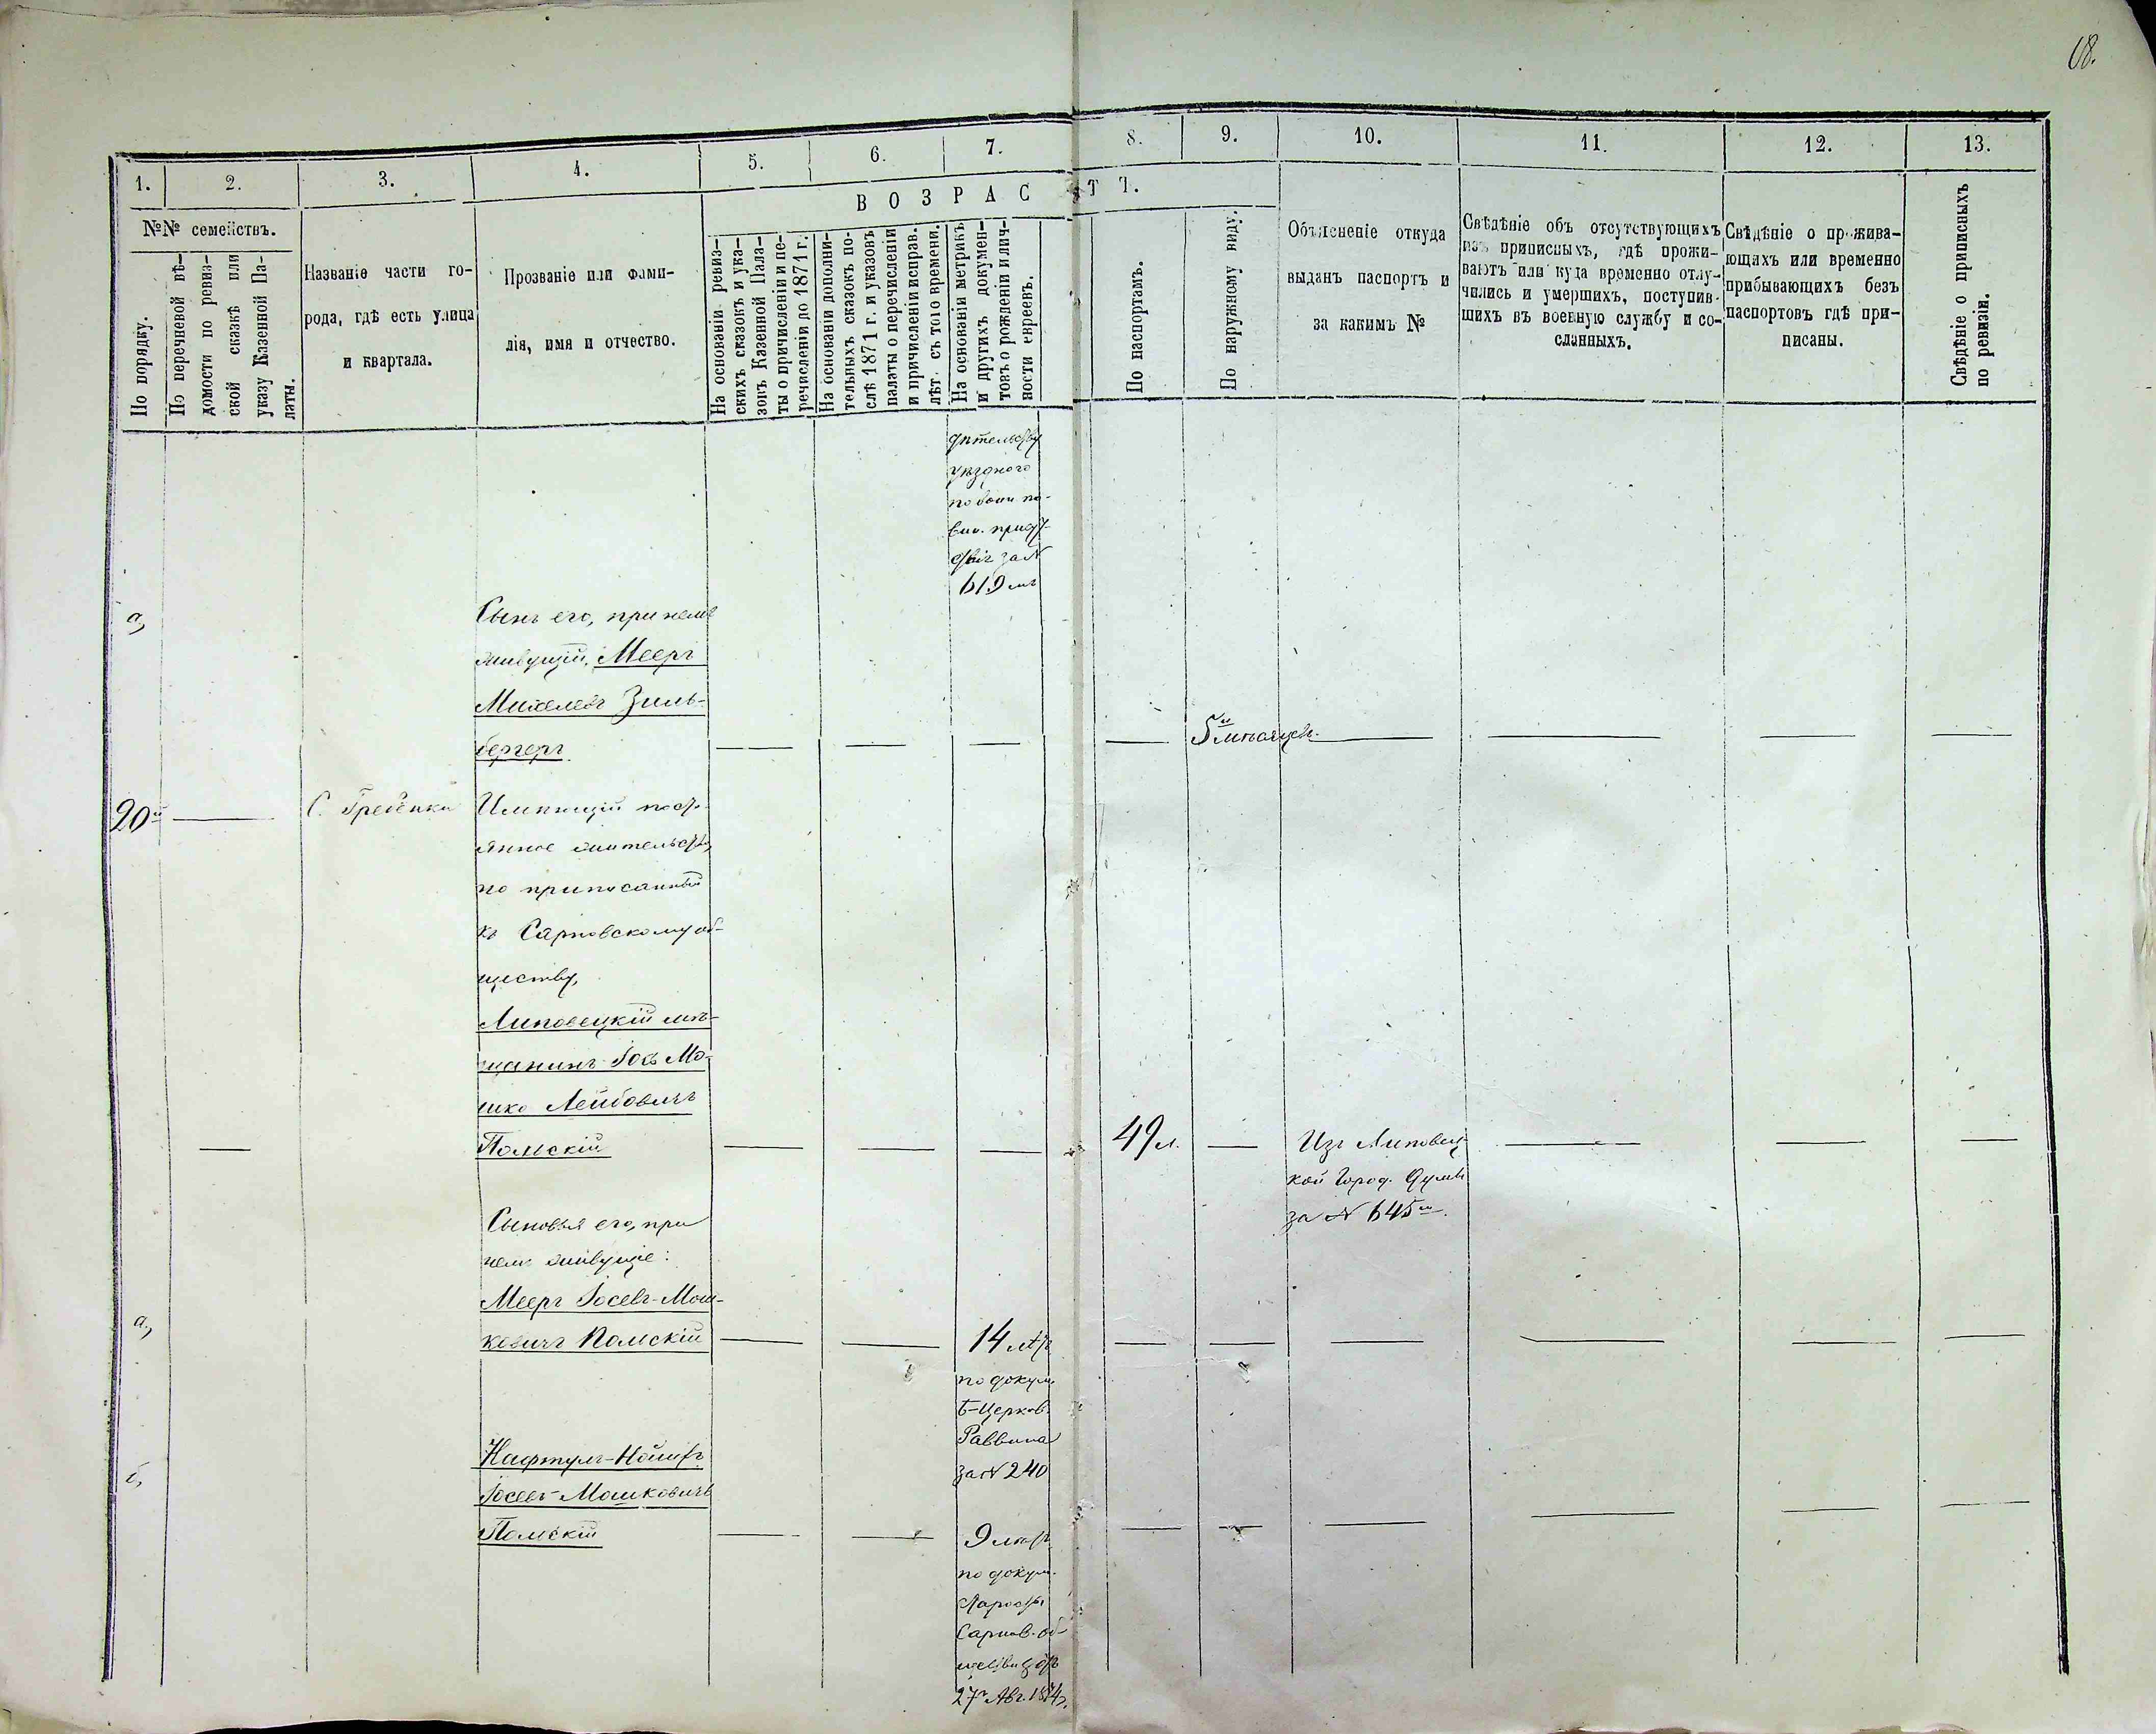 68.
1.
2.
3.
4.
5.
6.
7.
8.
9.
10.
11.
12.
13.
№№ семействъ.
По порядку.
По перечневой вѣ-
домости по ревиз-
ской сказкѣ или
указу Казенной Па-
латы.
Названіе части го-
рода, гдѣ есть улица
и квартала.
Прозваніе или фами-
лія, имя и отчество.
ВОЗРАСТЪ.
На основаніи ревиз-
скихъ сказокъ и ука-
зовъ Казенной Пала-
ты о причисленіи и пе-
речисленіи до 1871 г.
На основаніи дополни-
тельныхъ сказокъ по-
слѣ 1871 г. и указовъ
палаты о перечисленіи
и причисленіи исправ.
лѣт. съ того времени.
На основаніи метрикъ
и другихъ докумен-
товъ о рожденіи и лич-
ности евреевъ.
По паспортамъ.
По наружному виду.
Объясненіе откуда
выданъ паспортъ и
за какимъ №
Свѣдѣніе объ отсутствующихъ
изъ приписныхъ, гдѣ прожи-
ваютъ или куда временно отлу-
чились и умершихъ, поступив-
шихъ въ военную службу и со-
сланныхъ.
Свѣдѣніе о прожива-
ющихъ или временно
прибывающихъ безъ
паспортовъ гдѣ при-
писаны.
Свѣдѣніе о приписныхъ
по ревизіи.
дѣтельству
уѣзднаго
по воин. по-
вин. присут-
ствія за №
619мъ
а,
Сынъ его, при немъ
живущій, Мееръ
Михелевъ Зиль-
бергеръ
5й мѣсяцевъ.
20й
С. Гребенки
Имѣющій посто-
янное жительство,
но приписанный
къ Сарновскому об-
ществу,
Липовецкій мѣ-
щанинъ Іось Мо-
шко Лейбовичъ
Помскій
49 л.
Изъ Липовец-
кой Город. Думы
за № 645м.
Сыновья его, при
немъ живущіе:
а,
Мееръ Іосевъ-Мош-
ковичъ Помскій
14 лѣтъ
по докум.
Б-Церков.
Раввина
за № 240
б,
Нафтулъ-
Іосевъ-Мошковичъ
Помскій
9 лѣтъ
по докум.
Старосты
Сарнов. об-
щества отъ
27го Авг. 1874 г.